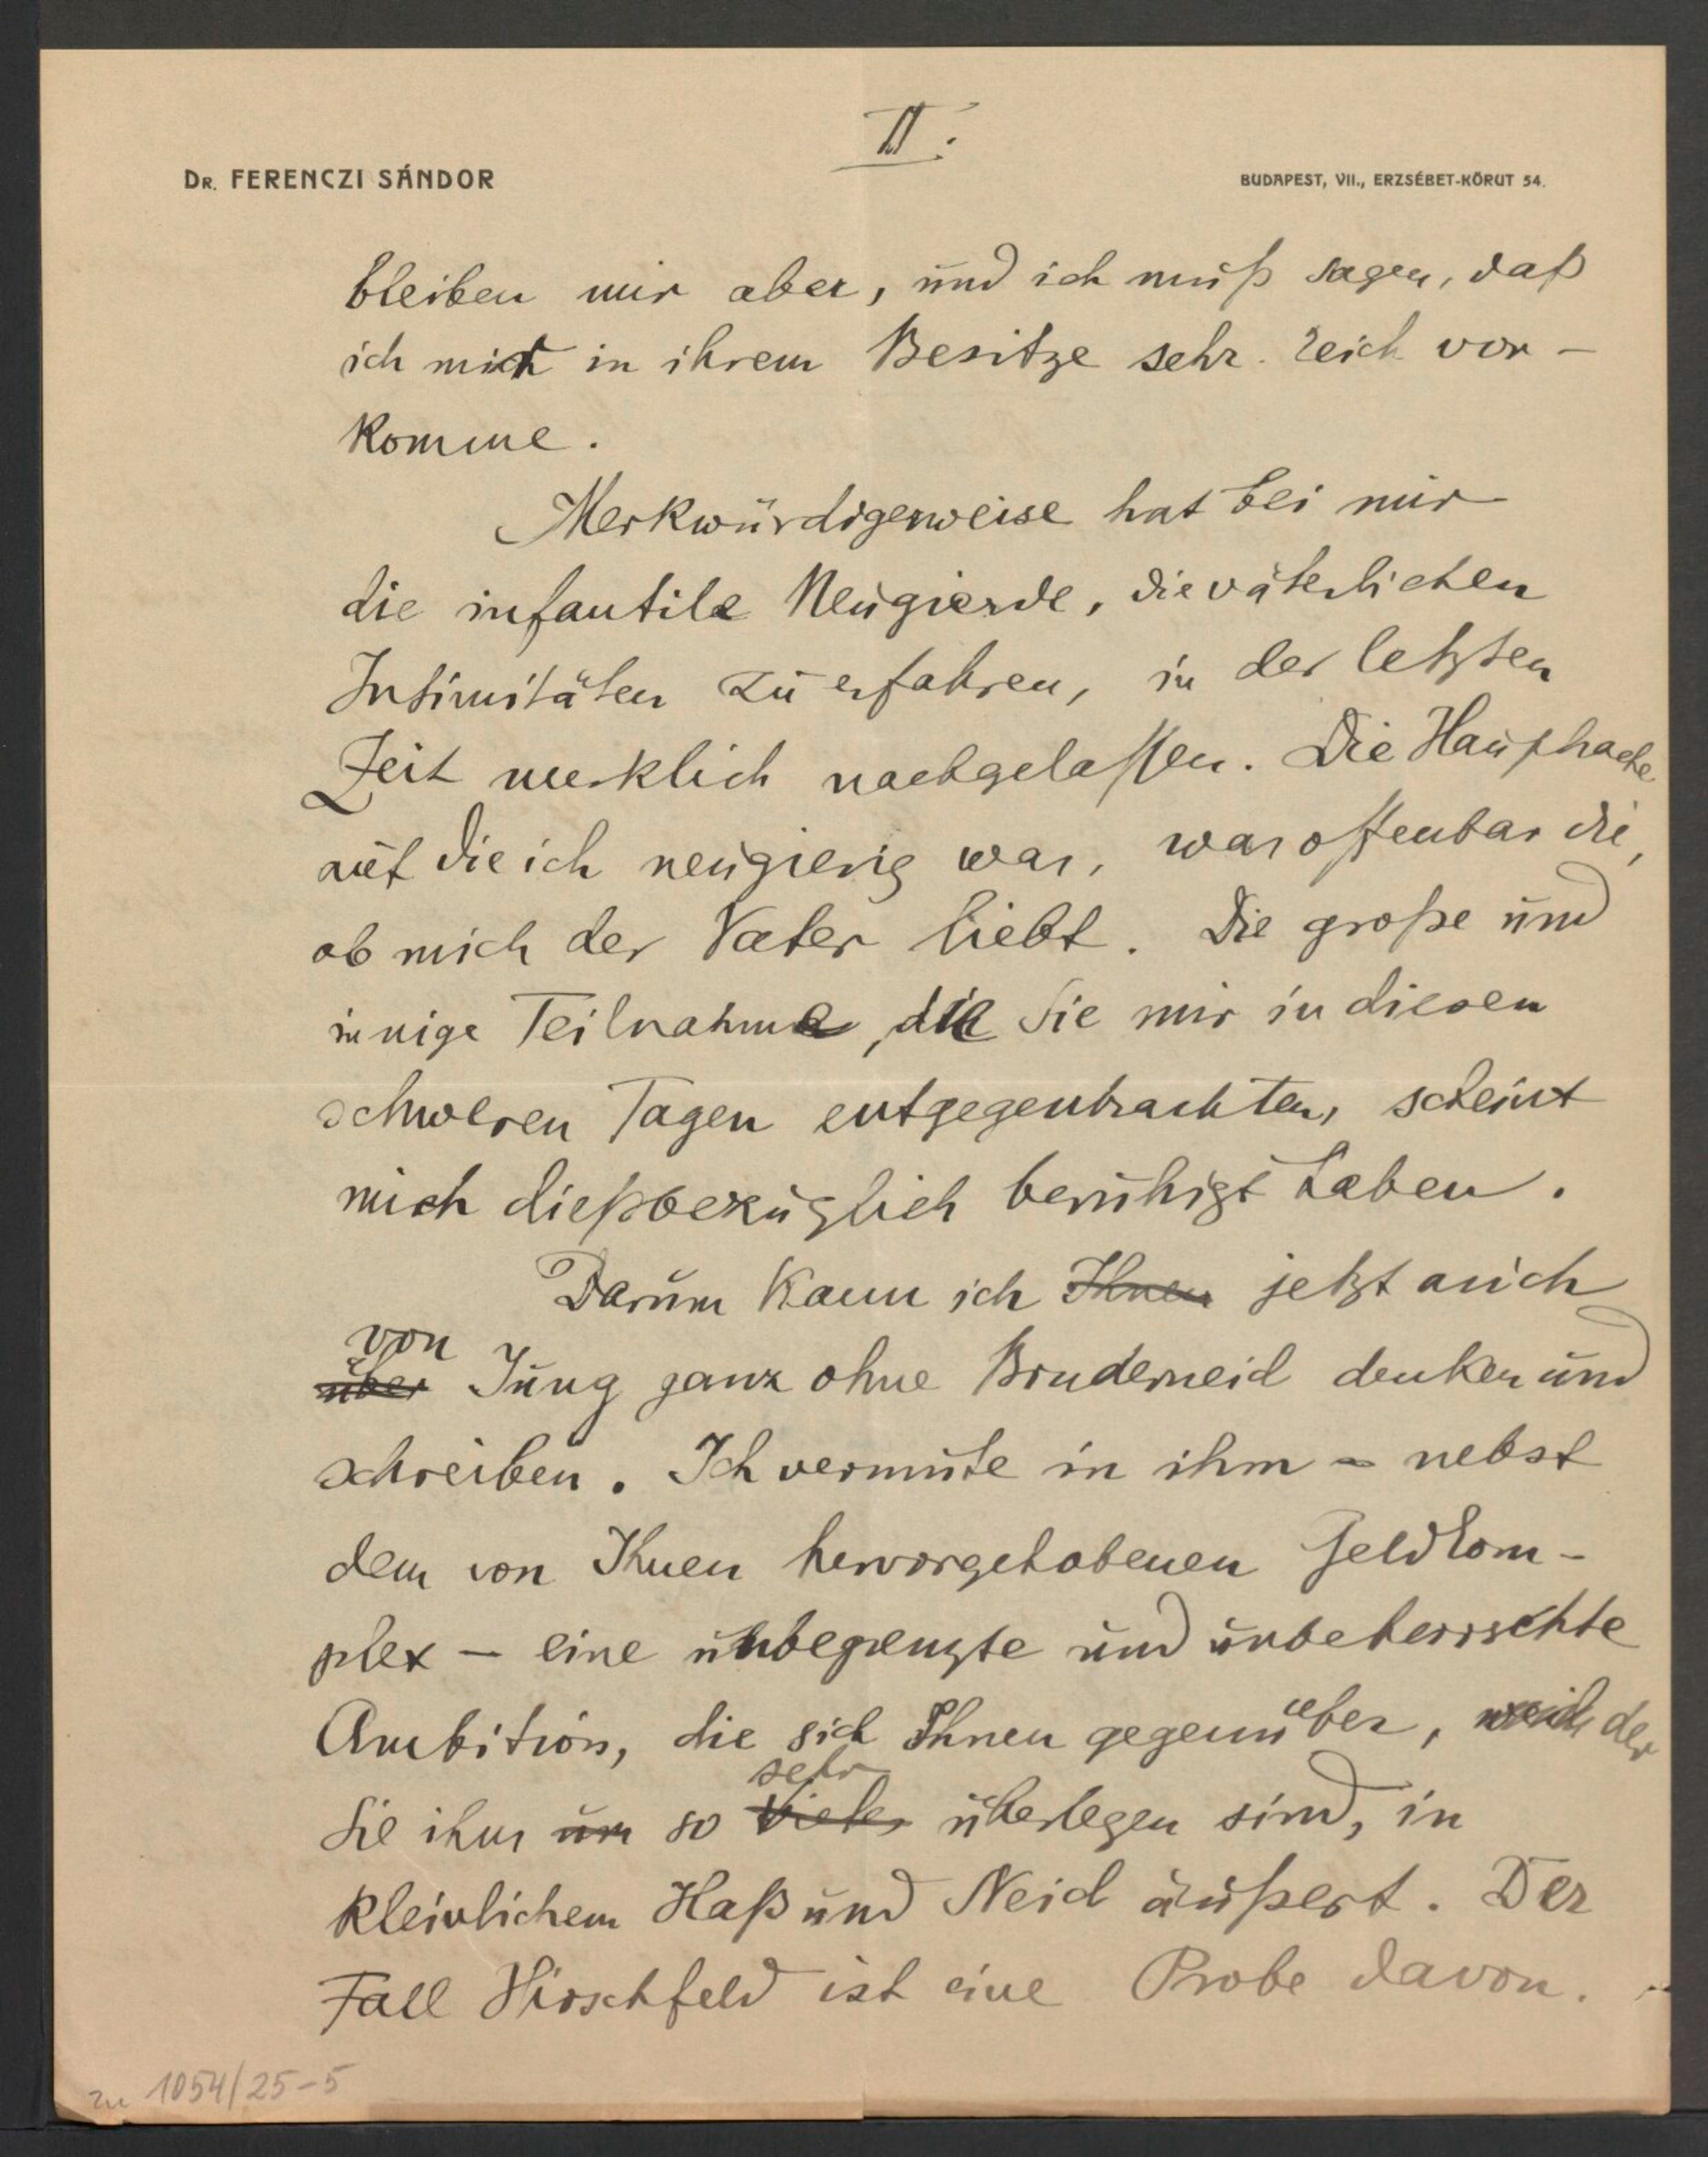 II.
DR. FERENCZI SÁNDOR
BUDAPEST, VII., ERZSÉBET-KÖRUT 54.
bleiben mir aber, und ich muß sagen, daß
ich mich in ihrem Besitze sehr reich vor-
komme.
Merkwürdigerweise hat bei mir
die infantile Neugierde, die väterlichen
Intimitäten zu erfahren, in der letzten
Zeit merklich nachgelassen. Die Hauptsache
auf die ich neugierig war, war offenbar die,
ob mich der Vater liebt. Die große und
innige Teilnahme, die Sie mir in diesen
schweren Tagen entgegenbrachten, scheint
mich dießbezüglich beruhigt haben.
Darum kann ich Ihnen jetzt auch
von
über Jung ganz ohne Bruderneid denken und
schreiben. Ich vermute in ihm – nebst
dem von Ihnen hervorgehobenen Geldkom-
plex – eine unbegrenzte und unbeherrschte
Ambition, die sich Ihnen gegenüber, der
sehr
Sie ihm um so vieles überlegen sind, in
kleinlichem Haß und Neid äußert. Der
Fall Hirschfeld ist eine Probe davon.
zu 1054/25-5